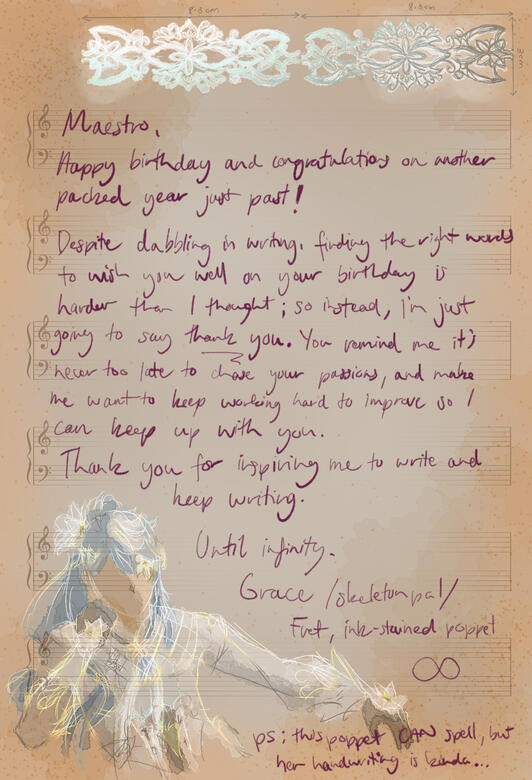 8.3cm 8.3cm
Maestro,
Happy birthday and congratulations on another
packed year just past!
Despite dabbling in writing, finding the right words
to wish you well on your birthday is
harder than I thought; so instead, I'm just
going to say thank you. You remind me it's
never too late to chase your passions, and make
me want to keep working hard to improve so I
can keep up with you.
Thank you for inspiring me to write and
keep writing.
Until infinity.
Grace /skeletonpal/
Fret, ink-stained poppet
∞
ps; this poppet CAN spell, but
her handwriting is kinda...